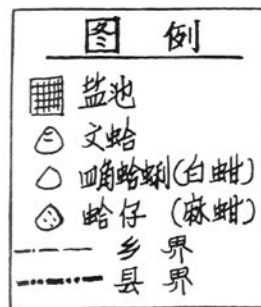 图 例
盐池
文蛤
四角蛤蜊(白蚶)
蛤仔 (麻蚶)
乡 界
县 界